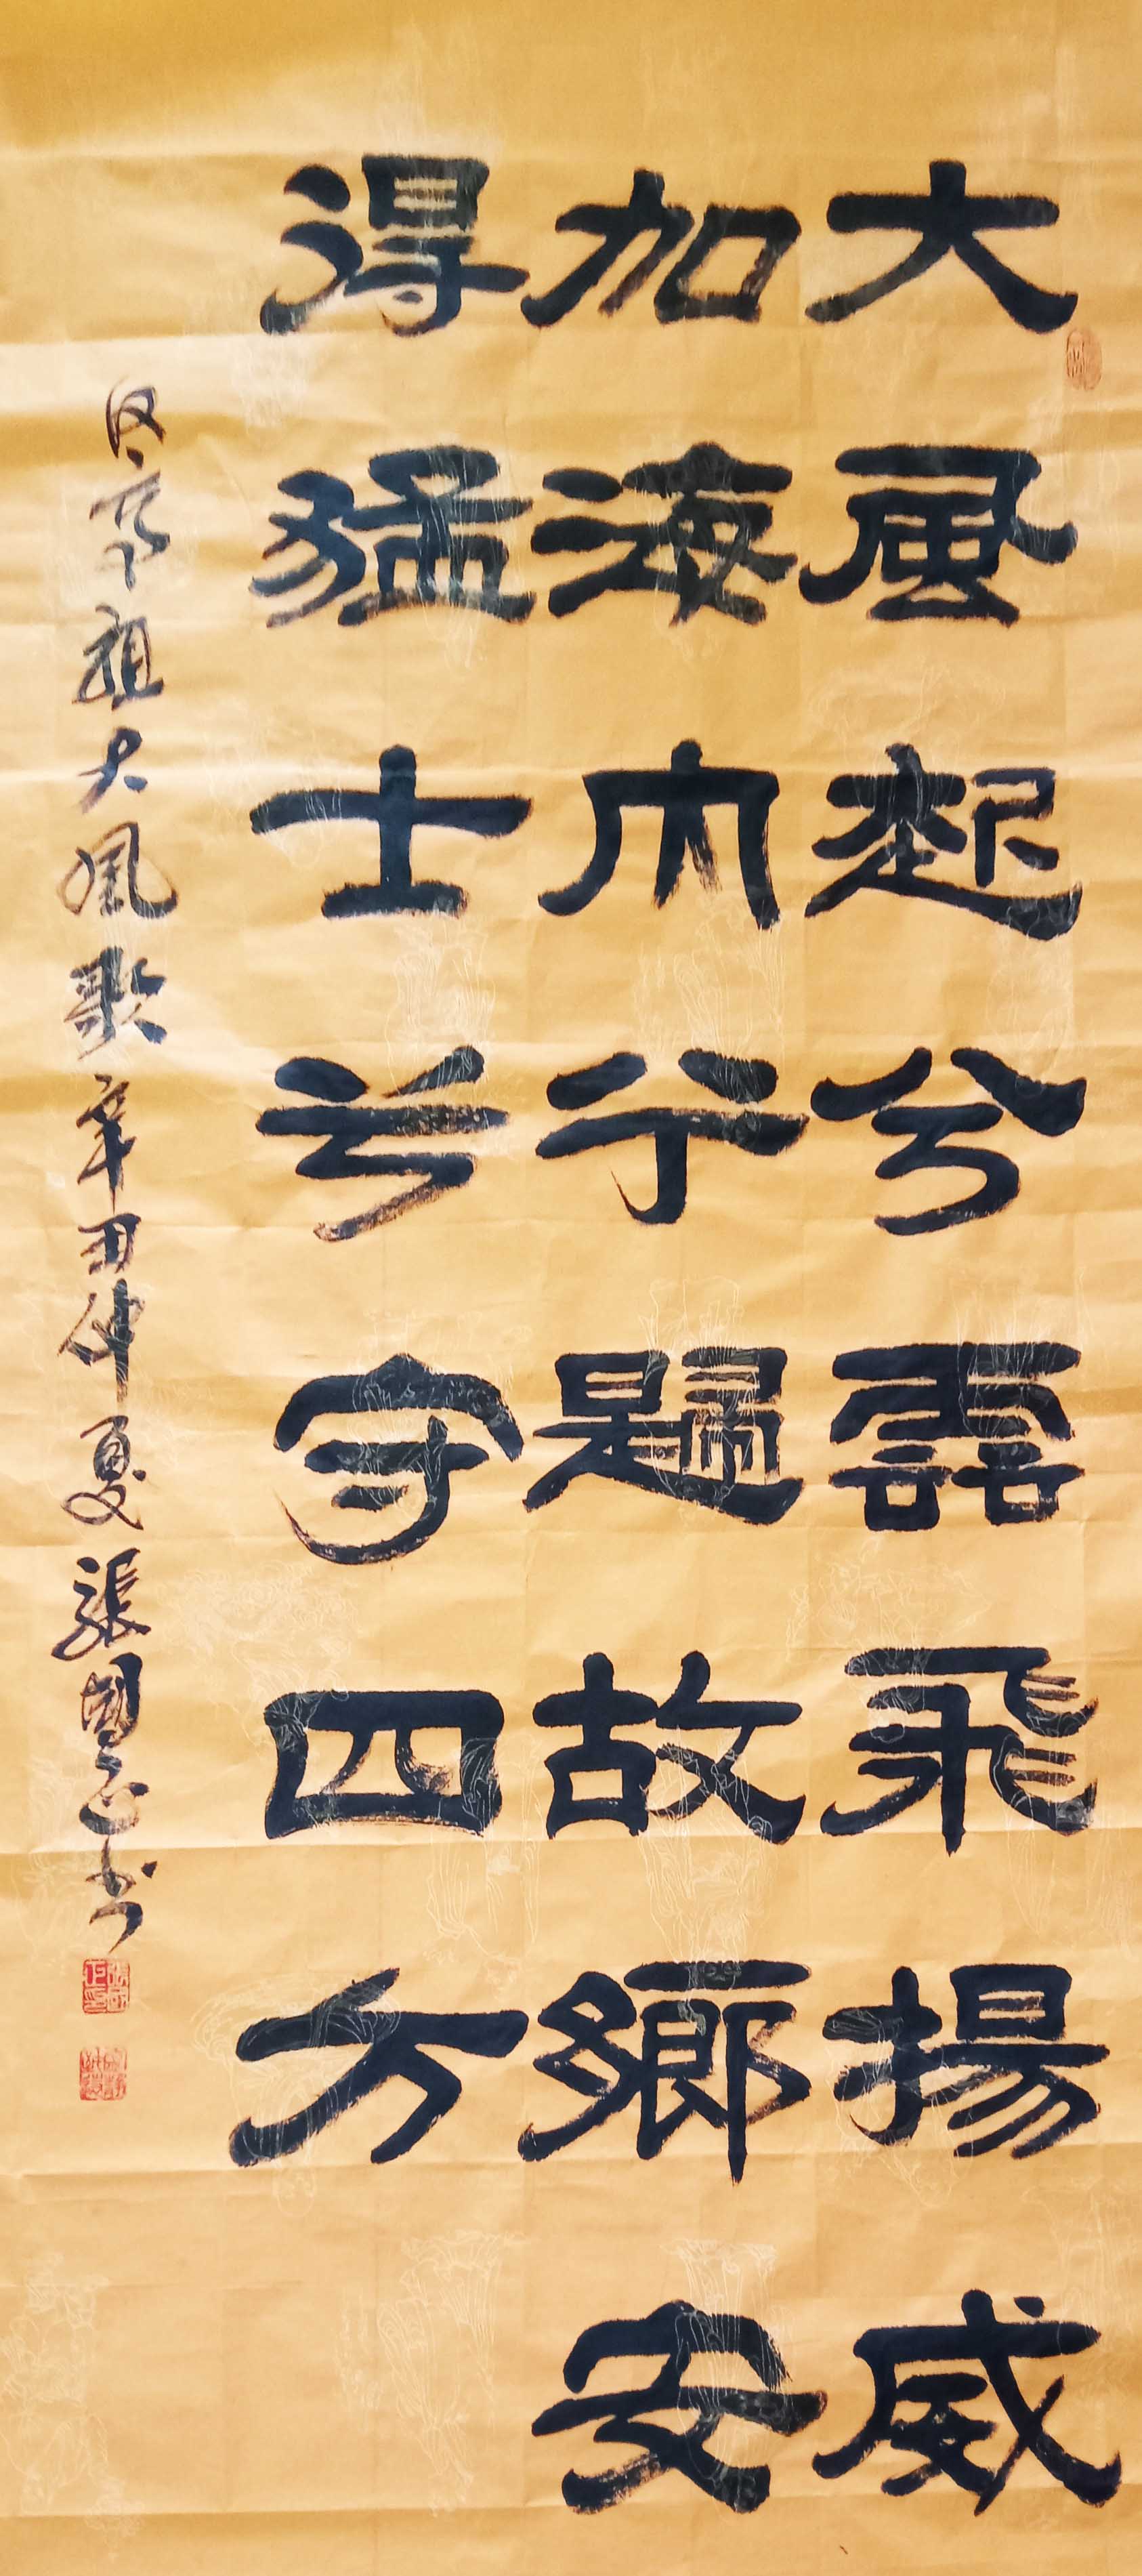 大風起兮雲飛揚威
加海内兮歸故鄉安
得猛士兮守四方
汉高祖大風歌辛丑仲夏張國正书